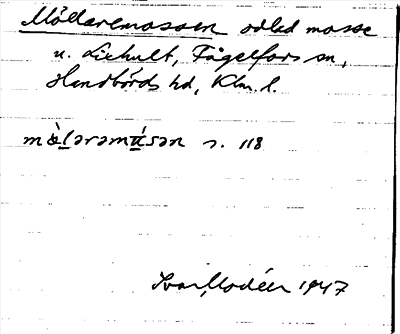 Möllaremossen odlad mosse
u. Liehult, Fågelfors sn,
Handbörds hd, Klm. l.
mö̀lərəmúsən s. 118
Ivar Modéer 1947